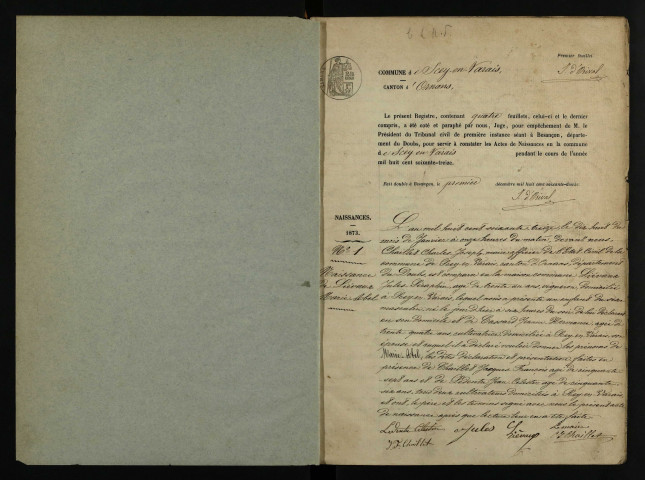 Premier feuillet
COMMUNE d Scey-en-Varais,
CANTON d'Ornans,
Le présent Registre, contenant quatre feuillets, celui-ci et le dernier
compris, a été coté et paraphé par nous, Juge, pour empêchement de M. le
Président du Tribunal civil de première instance séant à Besançon, départe-
ment du Doubs, pour servir à constater les Actes de Naissances en la commune
d Scey-en-Varais pendant le cours de l'année
mil huit cent soixante-treize.
Fait double à Besançon, le premier décembre mil huit cent soixante-douze.
NAISSANCES.
1873.
N° 1
Naissance
de
Marie Abel
L'an mil huit cent soixante treize le dix huit du
mois de Janvier à onze heures du matin, devant nous
Chaillet Charles Joseph maire officier de l'Etat Civil de la
commune de Scey en Varais canton d'Ornans, département
du Doubs, est comparu en la maison commune
Jules Séraphin, âgé de trente un ans vigneron domicilié
à Scey en Varais, lequel nous a présenté un enfant du sexe
masculin, né le jour d'hier à six heures du soir de lui déclarant
en son domicile et de Jeanne Hermance âgée de
trente quatre ans cultivatrice domiciliée à Scey en Varais son
épouse et auquel il a déclaré vouloir donner les prénoms de
Marie Abel, les dites déclaration et présentation faites en
présence de Chaillet Jacques François âgé de cinquante
sept ans et de Jean Célestin âgé de cinquante
six ans, tous deux cultivateurs domiciliés à Scey en Varais
et ont, le père et les témoins signé avec nous le présent acte
de naissance après que lecture leur en a été faite.
Célestin Jules Le maire
J F Chaillet Chaillet